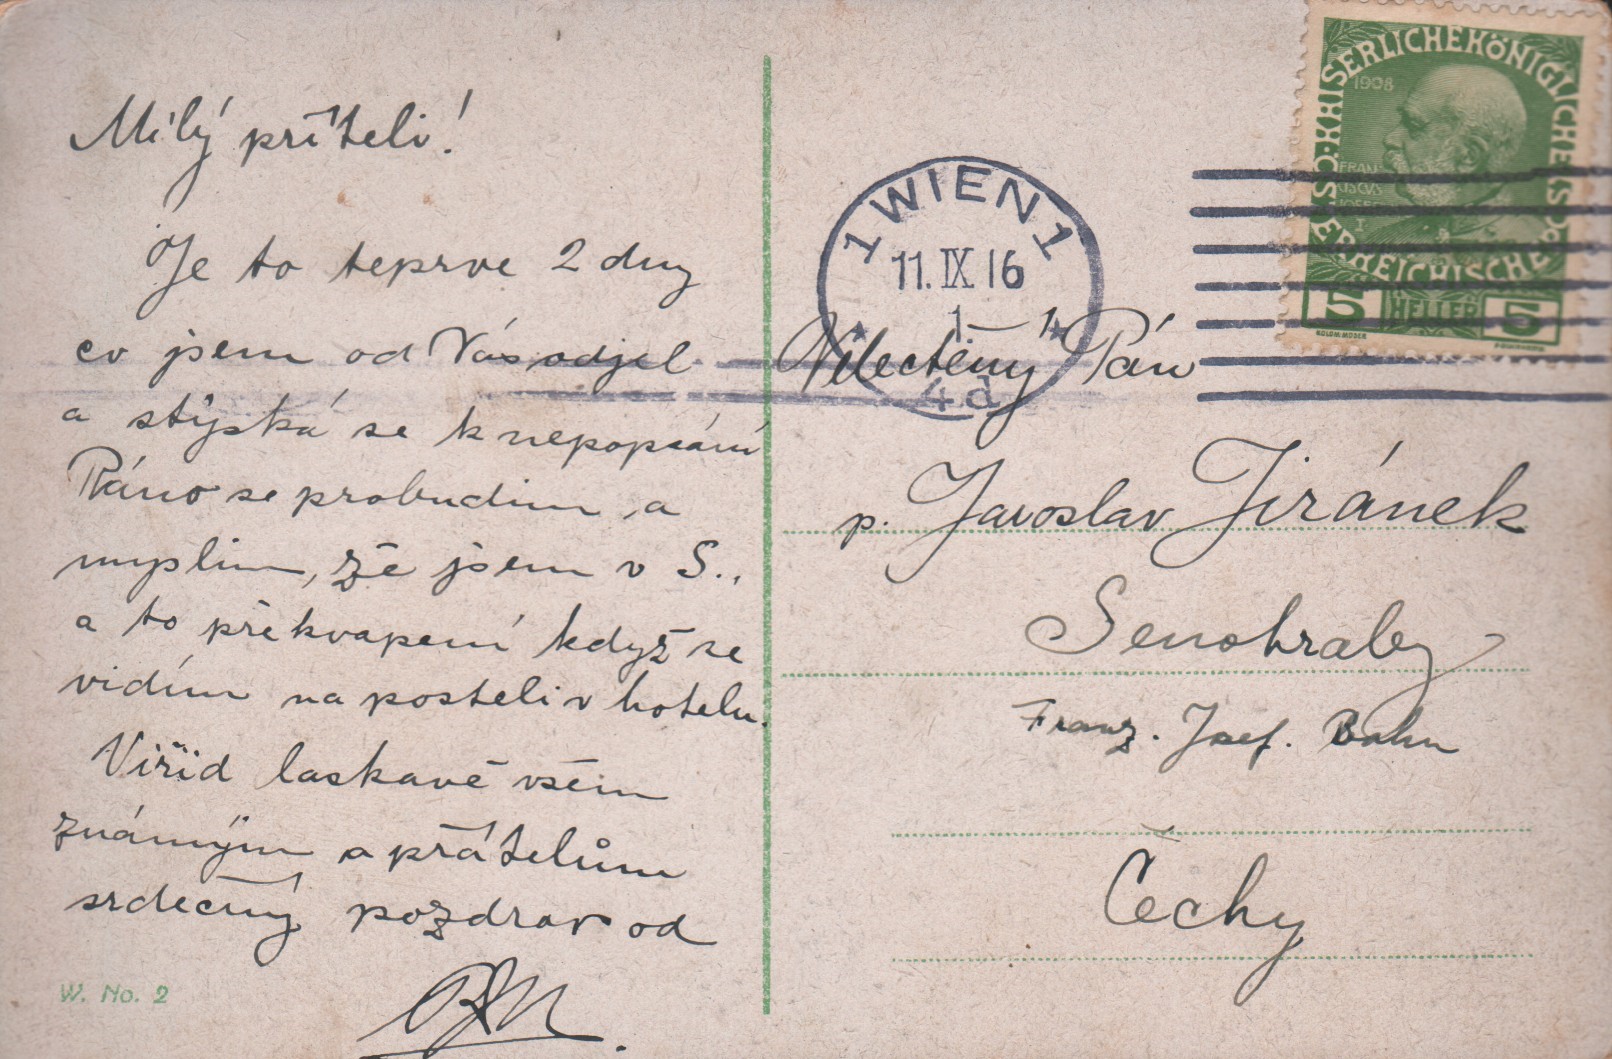 Milý příteli!
Je to teprve 2 dny
co jsem od Vás odjel
a stýská se k nepopsání
Ráno se probudim, a
myslim, že jsem v S.,
a to překvapení když se
vidím na posteli v hotelu.
Viřid laskavě všem
známým a přátelům
srdečný pozdrav od
W. No. 2
1 WIEN 1
11. IX 16
1
4d
KAISERLICHE KÖNIGLICHE
ÖSTERREICHISCHE
1908
FRAN
CISCVS
JOSEF
I
5 HELLER 5
Velectěný Pán
p. Jaroslav Jiránek
Senohraby
Franz. Josef. Bahn
Čechy